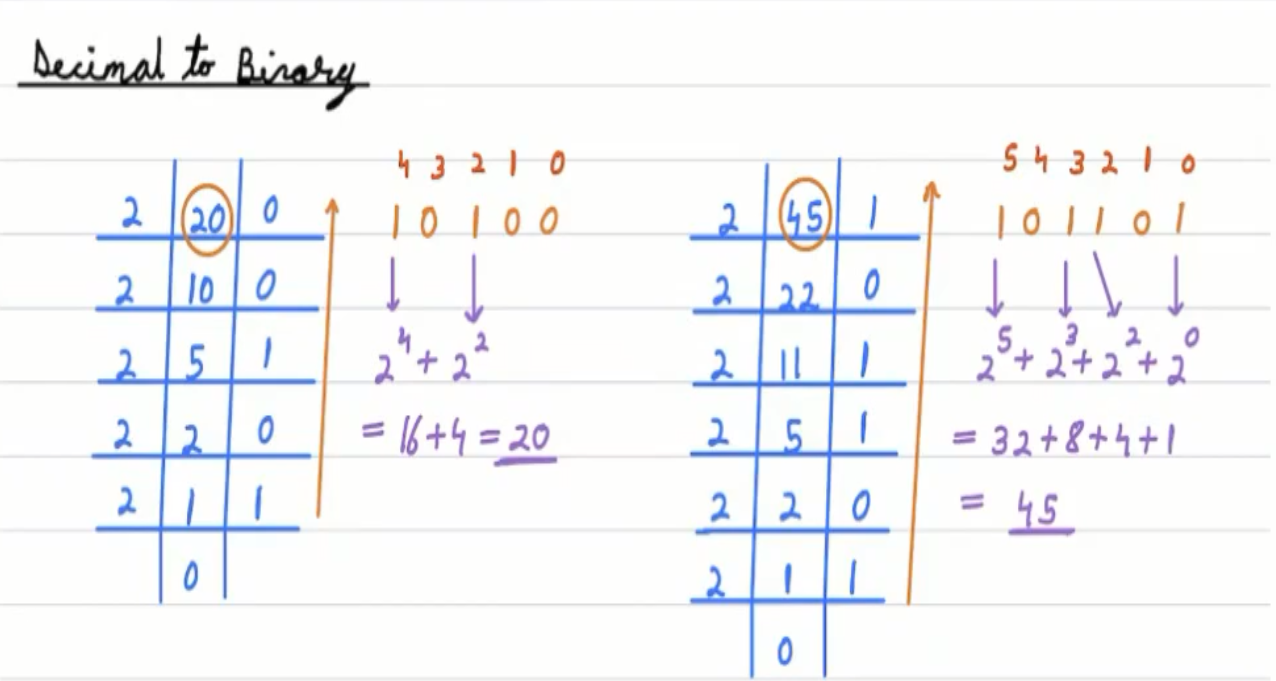 Decimal to Binary
2 20 0
2 10 0
2 5 1
2 2 0
2 1 1
0
4 3 2 1 0
1 0 1 0 0
2^4 + 2^2
= 16+4 = 20
2 45 1
2 22 0
2 11 1
2 5 1
2 2 0
2 1 1
0
5 4 3 2 1 0
1 0 1 1 0 1
2^5 + 2^3 + 2^2 + 2^0
= 32+8+4+1
= 45